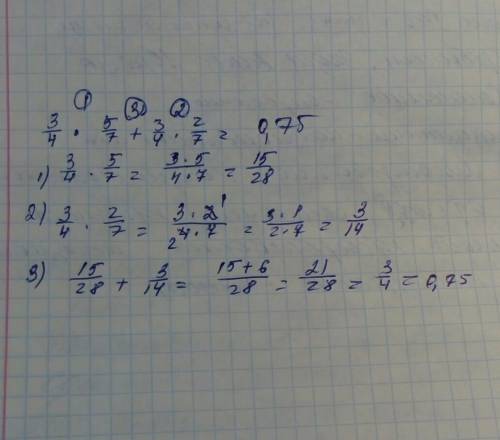 ① ③ ②
3/4 · 5/7 + 3/4 · 2/7 = 0,75
1) 3/4 · 5/7 = 3·5/4·7 = 15/28
2) 3/4 · 2/7 = 3·2 1/2 4·7 = 3·1/2·7 = 3/14
3) 15/28 + 3/14 = 15+6/28 = 21/28 = 3/4 = 0,75